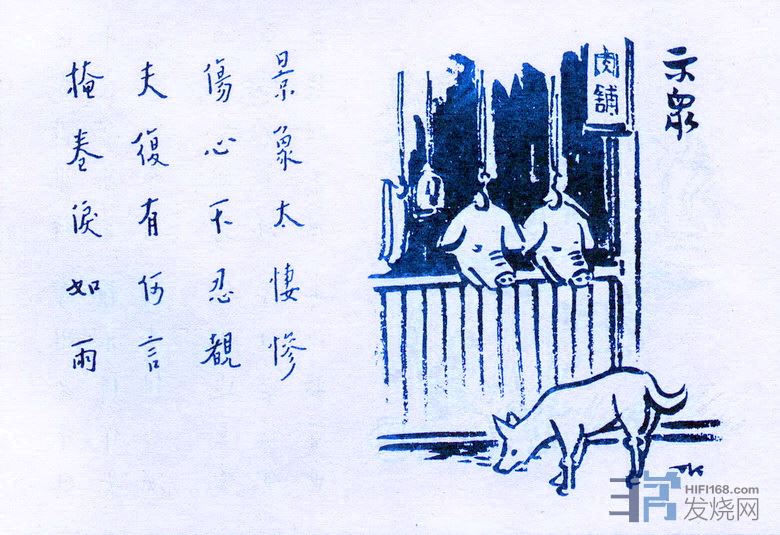 示眾
肉舖
景象太悽慘
傷心不忍覩
夫復有何言
掩卷淚如雨
TK
HIFI168.com
发烧网